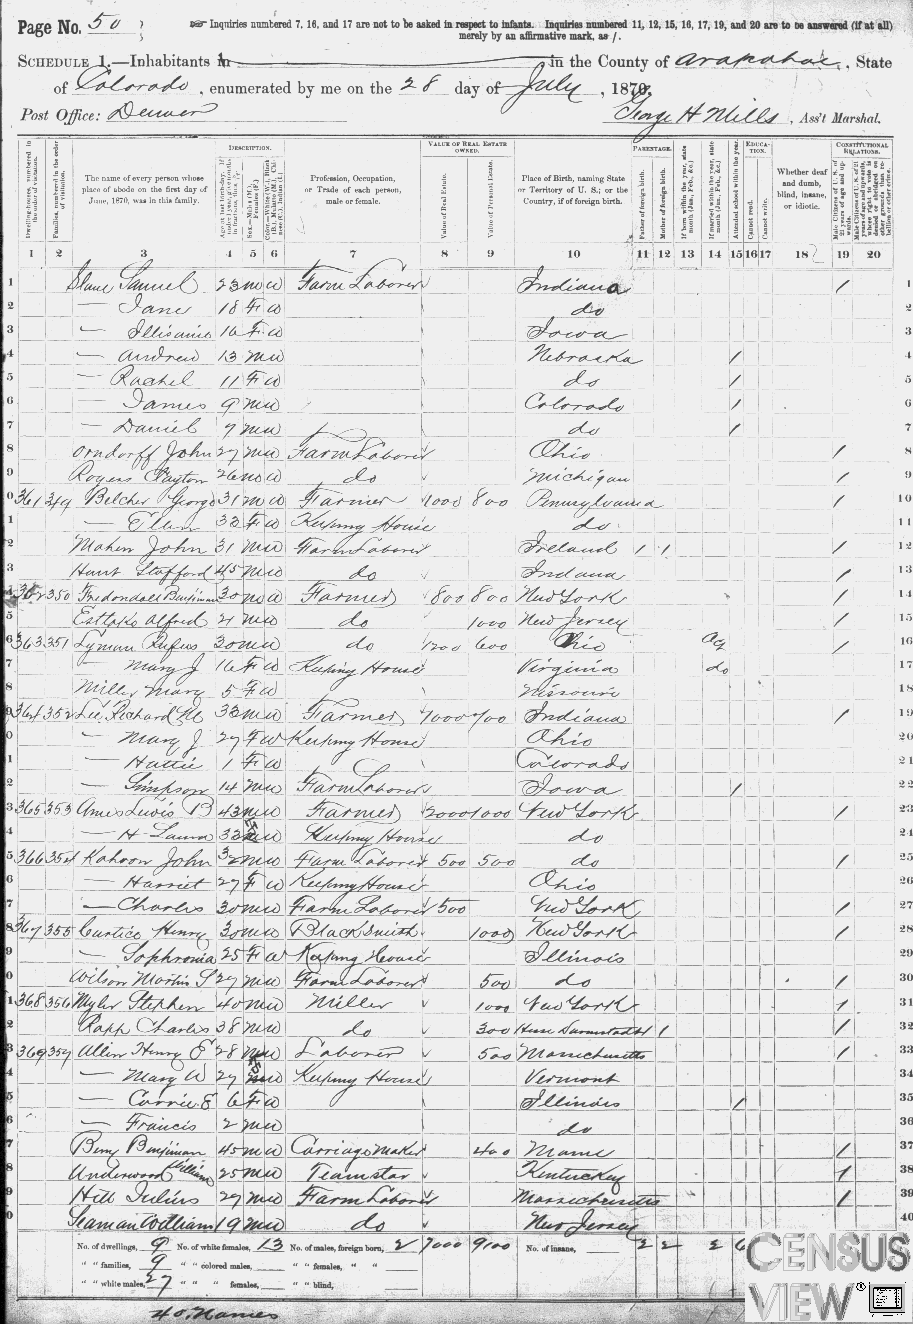 Page No. 50
Inquiries numbered 7, 16, and 17 are not to be asked in respect to infants. Inquiries numbered 11, 12, 15, 16, 17, 19, and 20 are to be answered (if at all) merely by an affirmative mark, as /.
SCHEDULE 1.—Inhabitants in in the County of Arapahoe, State
of Colorado, enumerated by me on the 28 day of July, 1870.
Post Office: Denver George H Mills, Ass't Marshal.
DESCRIPTION. VALUE OF REAL ESTATE OWNED. PARENTAGE. EDUCATION. CONSTITUTIONAL RELATIONS.
Dwelling-houses, numbered in the order of visitation. Families, numbered in the order of visitation. The name of every person whose place of abode on the first day of June, 1870, was in this family. Profession, Occupation, or Trade of each person, male or female. Value of Real Estate. Value of Personal Estate. Place of Birth, naming State or Territory of U. S.; or the Country, if of foreign birth. Father of foreign birth. Mother of foreign birth. If born within the year, state month (Jan., Feb., &c.) If married within the year, state month (Jan., Feb., &c.) Attended school within the year. Cannot read. Cannot write. Whether deaf and dumb, blind, insane, or idiotic.
1 2 3 4 5 6 7 8 9 10 11 12 13 14 15 16 17 18 19 20
1 Samuel 23 M W Farm Laborer Indiana / 1
2 — Jane 18 F W do 2
3 — 16 F W Iowa 3
4 — Andrew 13 M W Nebraska / 4
5 — Rachel 11 F W do / 5
6 — James 9 M W Colorado / 6
7 — Daniel 7 M W do / 7
8 Orndorff John 27 M W Farm Laborer Ohio / 8
9 Rogers Payton 26 M W do Michigan / 9
0 361 349 Belcher George 31 M W Farmer 1000 800 Pennsylvania / 10
1 — Ellen 33 F W Keeping House do 11
2 Maher John 31 M W Farm Laborer Ireland 1 1 / 12
3 Hunt Stafford 45 M W do Indiana / 13
4 362 350 Benjiman 30 M W Farmer 800 800 New York / 14
5 Alfred 21 M W do 1000 New Jersey / 15
6 363 351 Lyman Rufus 30 M W do 1200 600 Ohio / 16
7 — Mary J 16 F W Keeping House Virginia do 17
8 Miller Mary 5 F W Missouri 18
9 364 352 Lee, Richard M 33 M W Farmer 1000 700 Indiana / 19
0 — Mary J 27 F W Keeping House Ohio 20
1 — Hattie 1 F W Colorado 21
2 — Simpson 14 M W Farm Laborer Iowa / 22
3 365 353 Ames Lewis B 43 M W Farmer 2000 1000 New York / 23
4 — H Laura 33 F W Keeping House do 24
5 366 354 Kahoon John 32 M W Farm Laborer 500 500 do / 25
6 — Harriet 27 F W Keeping House Ohio 26
7 — Charles 30 M W Farm Laborer 500 New York / 27
8 367 355 Curtice Henry 30 M W Black Smith 1000 New York / 28
9 — Sophronia 25 F W Keeping House Illinois 29
0 Wilson Martin S 27 M W Farm Laborer 500 do / 30
1 368 356 Myler Stephen 40 M W Miller 1000 New York / 31
2 Rapp Charles 38 M W do 300 Hesse Darmstadt 1 1 / 32
3 369 357 Allen Henry E 28 M W Laborer 500 Massachusetts / 33
4 — Mary A 27 F W Keeping House Vermont 34
5 — Carrie E 6 F W Illinois / 35
6 — Francis 2 M W do 36
7 Berry Benjiman 45 M W Carriage Maker 400 Maine / 37
8 Underwood William 25 M W Teamstar Kentucky / 38
9 Hill Julius 27 M W Farm Laborer Massachusetts / 39
0 Seaman William 19 M W do New Jersey 40
No. of dwellings, 9 No. of white females, 13 No. of males, foreign born, 2 7000 9100 No. of insane, 2 2 2 6
" " families, 9 " " colored males, " " females, " "
" " white males, 27 " " " females, " " blind,
40. Names
CENSUS
VIEW®